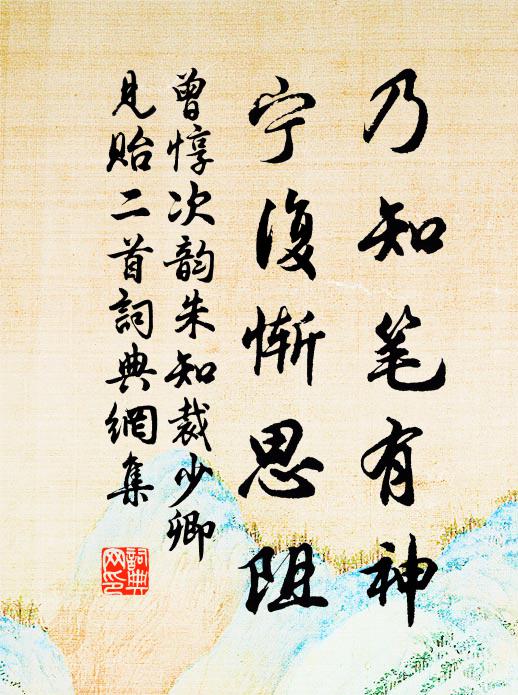 乃知笔有神
宁復惭思阻
曾惇次韵朱知裁少卿
見贻二首詞典網集
詞典网印